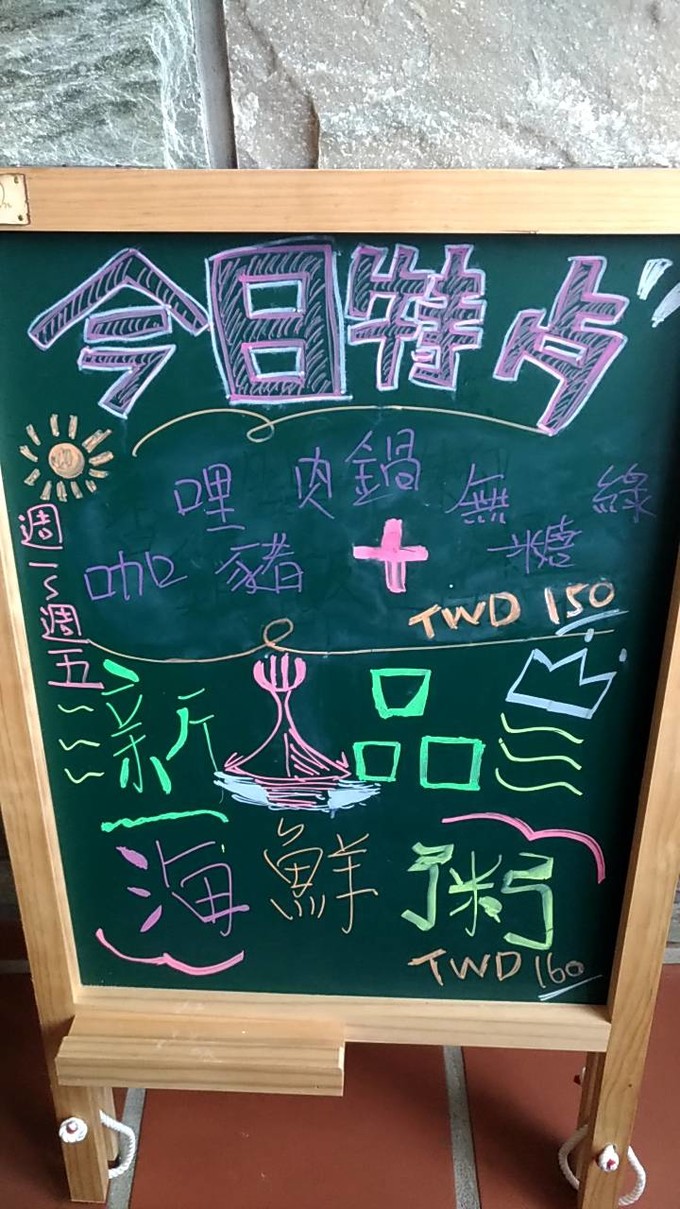 今日特点
週一~週五
咖哩豬肉鍋+無糖綠
TWD 150
新品
海鮮粥
TWD 160